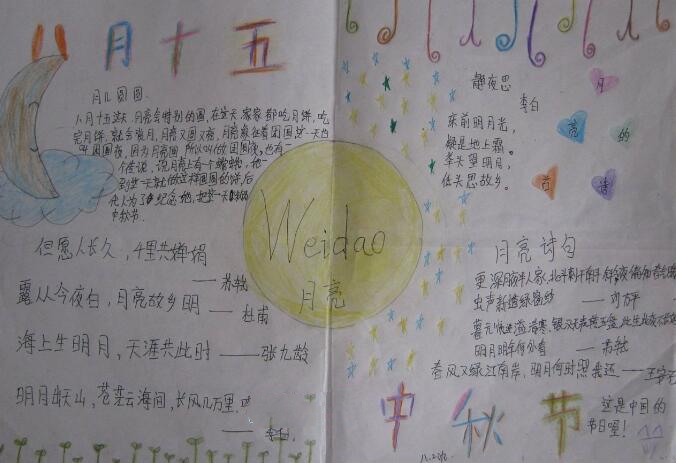 八月十五
月儿圆圆
八月十五这天,月亮会特别的圆,在这天家家都吃月饼,吃
完月饼,就会赏月,月亮又圆又亮,月亮象征着团团
叫团圆夜,因为月亮圆,所以叫做团圆夜,也有一
个传说,说月亮上有个嫦娥,她一
到这一天就做这样圆圆的饼,后
代人为了纪念她,把这一天
中秋节.
但愿人长久,千里共婵娟
——苏轼
露从今夜白,月亮故乡明
——杜甫
海上生明月,天涯共此时——张九龄
明月出天山,苍茫云海间,长风几万里,
——李白
Weidao
月亮
静夜思
李白
床前明月光,
疑是地上霜。
举头望明月,
低头思故乡。
月
亮
的
古
诗
月亮诗句
更深月色半人家,北斗阑干南斗斜
虫声新透绿窗纱 ——刘方平
暮云收尽溢清寒,银汉无声转玉盘,此生此夜不
明月明年何处看 ——苏轼
春风又绿江南岸,明月何时照我还——王安石
中秋节
这是中国的
节日喔!